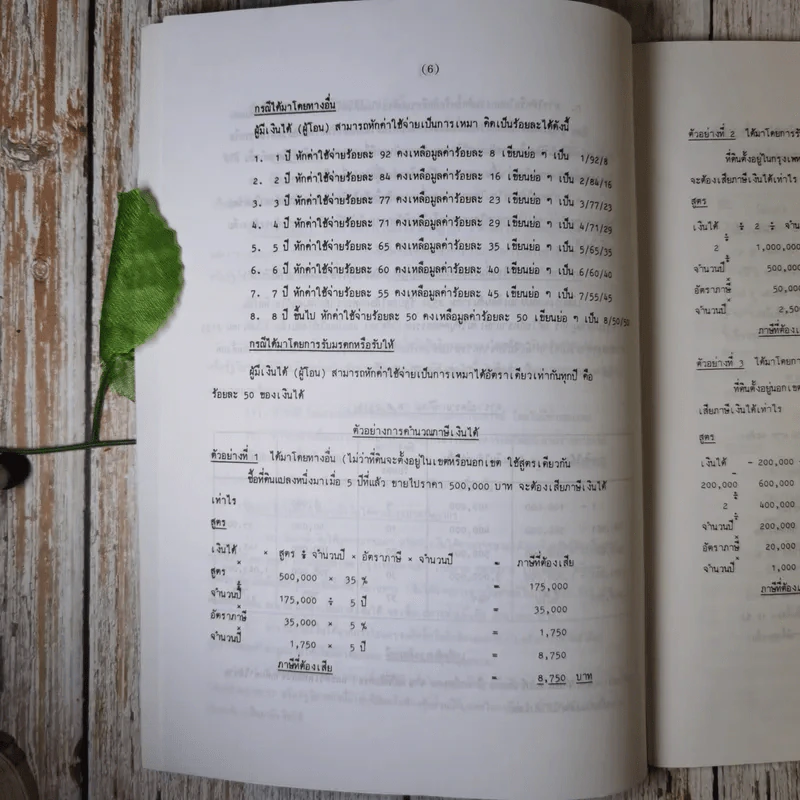 (6)
กรณีได้มาโดยทางอื่น
ผู้มีเงินได้ (ผู้โอน) สามารถหักค่าใช้จ่ายเป็นการเหมา คิดเป็นร้อยละได้ดังนี้
1. 1 ปี หักค่าใช้จ่ายร้อยละ 92 คงเหลือมูลค่าร้อยละ 8 เขียนย่อ ๆ เป็น 1/92/8
2. 2 ปี หักค่าใช้จ่ายร้อยละ 84 คงเหลือมูลค่าร้อยละ 16 เขียนย่อ ๆ เป็น 2/84/16
3. 3 ปี หักค่าใช้จ่ายร้อยละ 77 คงเหลือมูลค่าร้อยละ 23 เขียนย่อ ๆ เป็น 3/77/23
4. 4 ปี หักค่าใช้จ่ายร้อยละ 71 คงเหลือมูลค่าร้อยละ 29 เขียนย่อ ๆ เป็น 4/71/29
5. 5 ปี หักค่าใช้จ่ายร้อยละ 65 คงเหลือมูลค่าร้อยละ 35 เขียนย่อ ๆ เป็น 5/65/35
6. 6 ปี หักค่าใช้จ่ายร้อยละ 60 คงเหลือมูลค่าร้อยละ 40 เขียนย่อ ๆ เป็น 6/60/40
7. 7 ปี หักค่าใช้จ่ายร้อยละ 55 คงเหลือมูลค่าร้อยละ 45 เขียนย่อ ๆ เป็น 7/55/45
8. 8 ปี ขึ้นไป หักค่าใช้จ่ายร้อยละ 50 คงเหลือมูลค่าร้อยละ 50 เขียนย่อ ๆ เป็น 8/50/50
กรณีได้มาโดยการรับมรดกหรือรับให้
ผู้มีเงินได้ (ผู้โอน) สามารถหักค่าใช้จ่ายเป็นการเหมาได้อัตราเดียวเท่ากันทุกปี คือ
ร้อยละ 50 ของเงินได้
ตัวอย่างการคำนวณภาษีเงินได้
ตัวอย่างที่ 1 ได้มาโดยทางอื่น (ไม่ว่าที่ดินจะตั้งอยู่ในเขตหรือนอกเขต ใช้สูตรเดียวกัน
ซื้อที่ดินแปลงหนึ่งมาเมื่อ 5 ปีที่แล้ว ขายไปราคา 500,000 บาท จะต้องเสียภาษีเงินได้
เท่าไร
สูตร
เงินได้ × สูตร ÷ จำนวนปี × อัตราภาษี × จำนวนปี = ภาษีที่ต้องเสีย
×
สูตร 500,000 × 35 % = 175,000
÷
จำนวนปี 175,000 ÷ 5 ปี = 35,000
×
อัตราภาษี 35,000 × 5 % = 1,750
×
จำนวนปี 1,750 × 5 ปี = 8,750
ภาษีที่ต้องเสีย = 8,750 บาท
ตัวอย่างที่ 2 ได้มาโดยการรั
ที่ดินตั้งอยู่ในกรุงเทพ
จะต้องเสียภาษีเงินได้เท่าไร
สูตร
เงินได้ ÷ 2 ÷ จำน
÷
2 1,000,000
÷
จำนวนปี 500,00
×
อัตราภาษี 50,00
×
จำนวนปี 2,50
ภาษีที่ต้องเสี
ตัวอย่างที่ 3 ได้มาโดยกา
ที่ดินตั้งอยู่นอกเขต
เสียภาษีเงินได้เท่าไร
สูตร
เงินได้ - 200,000
-
200,000 600,000
÷
2 400,000
÷
จำนวนปี 200,000
×
อัตราภาษี 20,000
×
จำนวนปี 1,000
ภาษีที่ต้องเ